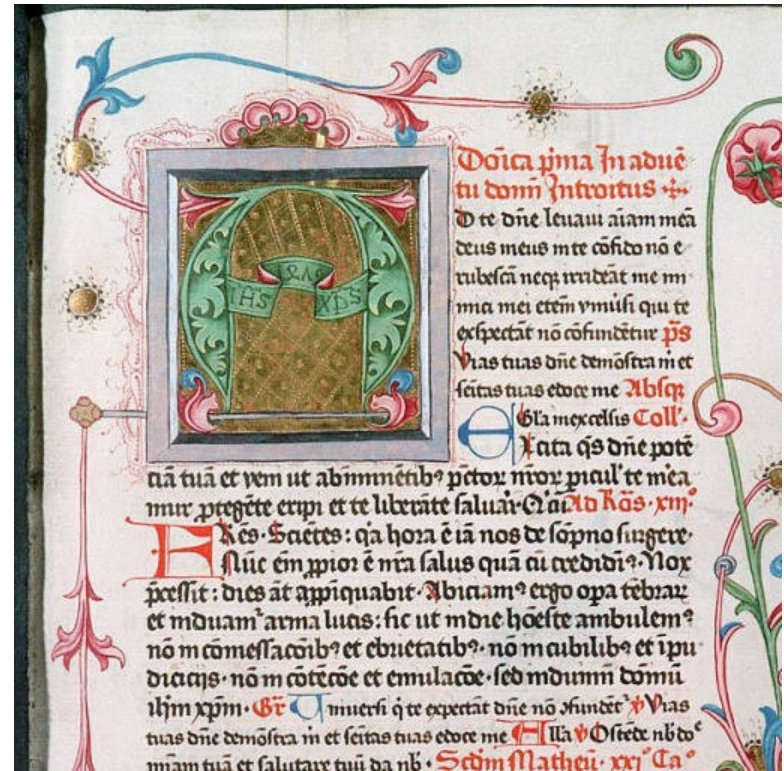 IHS XPS
Dōica p̄ma In aduē
tu domī Introitus
D te dn̄e leuaui aīam meā
deus meus in te cōfido nō e
rubescā neqꝫ irrideāt me ini
mici mei etem vniūsi qui te
exspectāt nō cōfundētur p̄s
Vias tuas dn̄e demōstra m̄ et
semitas tuas edoce me Absqꝫ
Gl̄a in excelsis Coll'
Excita q̄s dn̄e potē
ciā tuā et veni ut ab imminētibꝰ pc̄tor̄ nr̄or̄ picul' te mea
mur ptegēte eripi et te liberāte saluar̄ Ad Rōs. xiijº
FRēs. Scietes: q̄a hora ē iā nos de sōpno surgere.
Nūc em̄ ppior ē nr̄a salus quā cū credidiꝰ. Nox
p̄cessit: dies āt app̄iquabit. Abiciamꝰ ergo op̄a tēbrar̄
et induam᷑ arma lucis: sic ut in die hōeste ambulemꝰ
nō in cōmessacōibꝰ et ebrietatibꝰ. nō in cubilibꝰ et īpu
diciciis. nō in cōtēcōe et emulacōe. sed induim̄ domīnū
ihm̄ xp̄m. Gr̄ Uniuersi q̄ te expectāt dn̄e nō ɔfundēt᷑ ℣ Vias
tuas dn̄e demōstra m̄ et semitas tuas edoce me Allā ℣ Ostēde nb̄ doᵉ
miam tuā et salutare tuū da nb̄. Scdm̄ Matheū. xxjº Caº